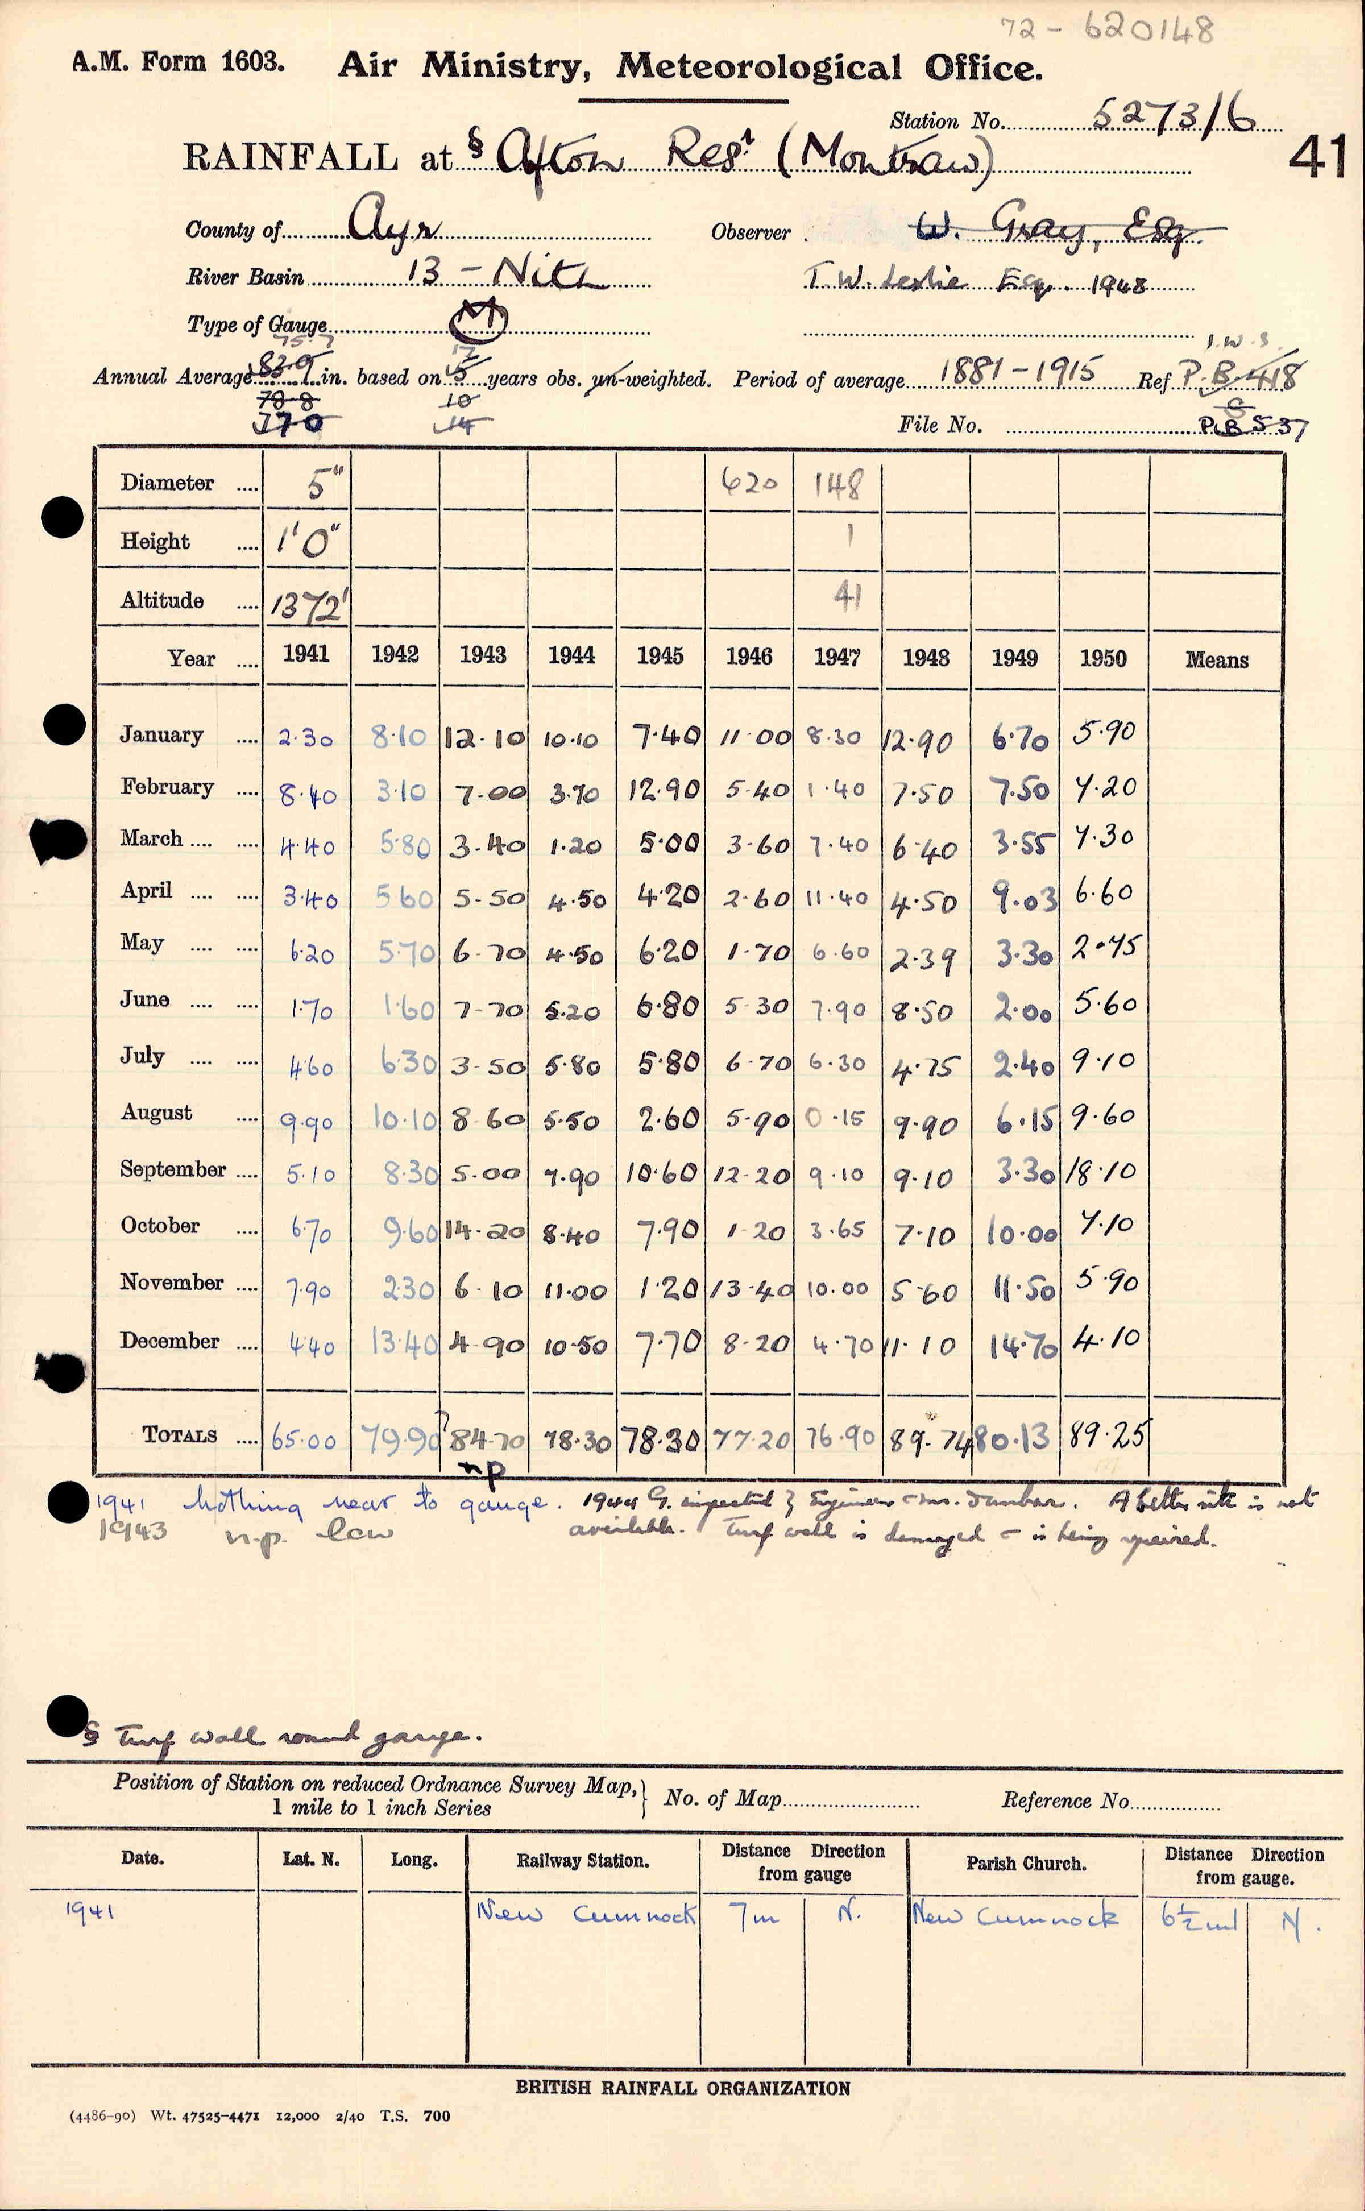 72 - 620148
A.M. Form 1603. Air Ministry, Meteorological Office.
Station No. 5273/6
RAINFALL at § Afton Resr (Montraw) 41
County of Ayr Observer W. Gray, Esq.
River Basin 13 - Nith T.W. Leslie Esq. 1948
Type of Gauge M
75.7 12 I.W.S.
Annual Average 83.9 in. based on 5 years obs. un-weighted. Period of average 1881-1915 Ref. P.B. 418
78.8 10
770 14 File No. P.B 537
Diameter .... 5" 620 148
Height .... 1'0" 1
Altitude .... 1372' 41
Year .... 1941 1942 1943 1944 1945 1946 1947 1948 1949 1950 Means
January .... 2.30 8.10 12.10 10.10 7.40 11.00 8.30 12.90 6.70 5.90
February .... 8.40 3.10 7.00 3.70 12.90 5.40 1.40 7.50 7.50 7.20
March .... .... 4.40 5.80 3.40 1.20 5.00 3.60 7.40 6.40 3.55 7.30
April .... .... 3.40 5.60 5.50 4.50 4.20 2.60 11.40 4.50 9.03 6.60
May .... .... 6.20 5.70 6.70 4.50 6.20 1.70 6.60 2.39 3.30 2.75
June .... .... 1.70 1.60 7.70 5.20 6.80 5.30 7.90 8.50 2.00 5.60
July .... .... 4.60 6.30 3.50 5.80 5.80 6.70 6.30 4.75 2.40 9.10
August .... 9.90 10.10 8.60 5.50 2.60 5.90 0.15 9.90 6.15 9.60
September .... 5.10 8.30 5.00 7.90 10.60 12.20 9.10 9.10 3.30 18.10
October .... 6.70 9.60 14.20 8.40 7.90 1.20 3.65 7.10 10.00 7.10
November .... 7.90 2.30 6.10 11.00 1.20 13.40 10.00 5.60 11.50 5.90
December .... 4.40 13.40 4.90 10.50 7.70 8.20 4.70 11.10 14.70 4.10
TOTALS .... 65.00 79.90 ?84.70 78.30 78.30 77.20 76.90 89.74 80.13 89.25
np
1941 Nothing near to gauge. 1944 G. inspected by Engineer & Mr. Dunbar. A better site is not
1943 n.p. low available. Turf wall is damaged - is being repaired.
§ Turf wall round gauge.
Position of Station on reduced Ordnance Survey Map, 1 mile to 1 inch Series } No. of Map Reference No.
Date. Lat. N. Long. Railway Station. Distance Direction from gauge Parish Church. Distance Direction from gauge.
1941 New Cumnock 7m N. New Cumnock 6½ml N.
BRITISH RAINFALL ORGANIZATION
(4486-90) Wt. 47525-4471 12,000 2/40 T.S. 700